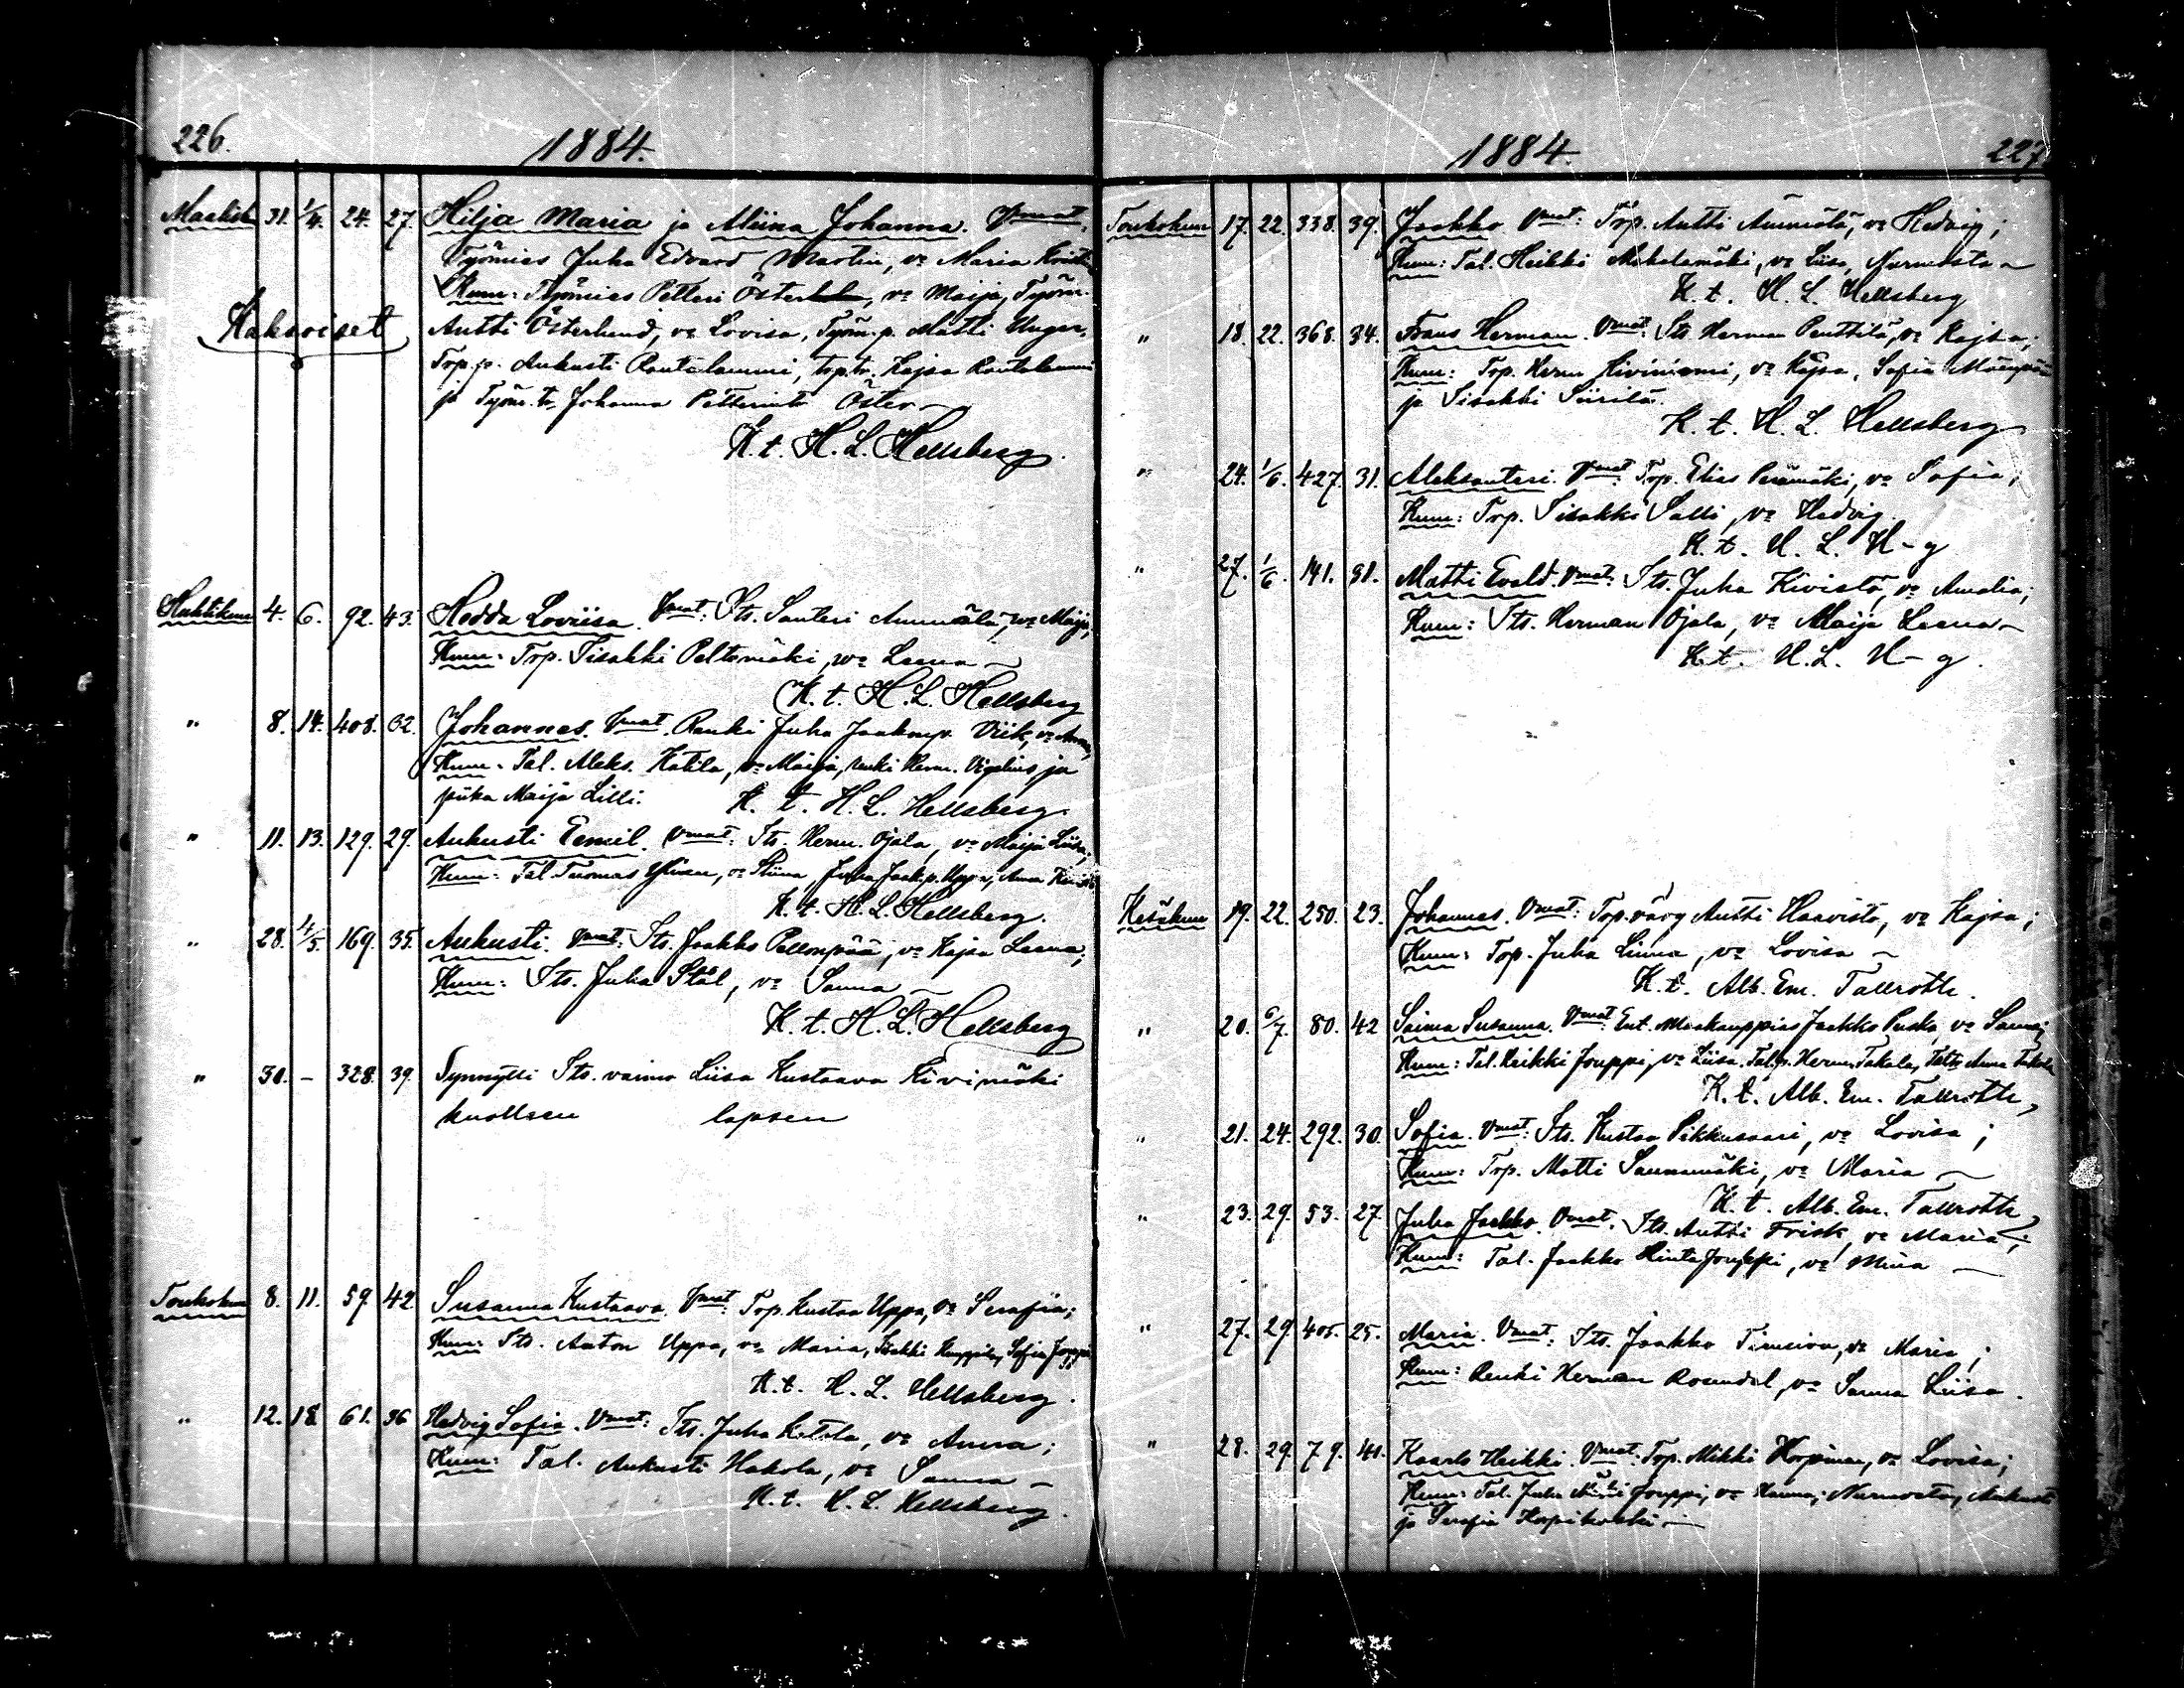 226.
1884.
Maalisk. 31. 1/4. 24. 27. Hilja Maria ja Miina Johanna. Vmat.
Työmies Juha Edvard Martin, vo Maria Kristi
Kum: Työmies Petteri Öster, vo Maija, Työm.
Kaksoiset
Antti Österlund, vo Lovisa, Työm. p. Matti Unger,
Trp. p. Aukusti Rautalammi, trp. tr. Kajsa Rautalammi
ja Työm. tr. Johanna Petterintr Öster
K. t. H. L. Hellsberg.
Huhtikuu 4. 6. 92. 43. Hedda Loviisa. Vmat: Its. Santeri Ammälä, vo Maija,
Kum: Trp. Iisakki Peltomäki, vo Leena
K. t. H. L. Hellsberg
" 8. 14. 408. 32. Johannes. Vmat. Renki Juha Jaakonp. Viik, vo Anna,
Kum. Tal. Aleks. Katila, vo Maija, renki Herm. Vigelius, ja
piika Maija Lilli. K. t. H. L. Hellsberg.
" 11. 13. 129. 29. Aukusti Eemil. Vmat: Its. Herm. Ojala, vo Maija Liisa;
Kum: Tal. Tuomas Yliven, vo Stiina, Juha Jaak.p. Uppa, Anna
K. t. H. L. Hellsberg.
" 28. 4/5. 169. 35. Aukusti. Vmat: Its. Jaakko Pellonpää, vo Kajsa Leena;
Kum: Its. Juha Stål, vo Sanna
K. t. H. L. Hellsberg
" 30. – 328. 39. Synnytti Its. vaimo Liisa Kustaava Kivimäki
kuolleen lapsen
Toukokuu 8. 11. 59. 42 Susanna Kustaava. Vmat: Trp. Kustaa Uppa, vo Serafia;
Kum: Its. Anton Uppa, vo Maria, Iisakki Knuppila, Sofia Jouppi
K. t. H. L. Hellsberg.
" 12. 18. 61. 36 Hedvig Sofia. Vmat: Its. Juha Ketola, vo Anna;
Kum: Tal. Aukusti Hakola, vo Sanna
K. t. H. L. Hellsberg.
1884.
227.
Toukokuu 17. 22. 338. 39. Jaakko Vmat: Trp. Antti Ämmälä, vo Hedvig;
Kum: Tal. Heikki Mäkelämäki, vo Liisa, Nurmosta
K. t. H. L. Hellsberg
" 18. 22. 368. 34. Frans Herman. Vmat: Its. Herman Penttilä, vo Kajsa;
Kum: Trp. Herm Kiviniemi, vo Kajsa, Sofia Mäenpää
ja Iisakki Siirilä.
K. t. H. L. Hellsberg
" 24. 1/6. 427. 31. Aleksanteri. Vmat: Trp. Elias Perämäki, vo Sofia;
Kum: Trp. Iisakki Salli, vo Hedvig.
K. t. H. L. H-g
" 27. 1/6. 141. 31. Matti Evald. Vmat: Its. Juha Kivistö, vo Amalia;
Kum: Its. Herman Ojala, vo Maija Leena
K. t. H. L. H-g.
Kesäkuu 19. 22. 250. 23. Johannes. Vmat: Trp. vävy Antti Haavisto, vo Kajsa;
Kum: Trp. Juha Linna, vo Lovisa
K. t. Alb. Em. Tallroth.
" 20. 6/7. 80. 42 Saima Susanna. Vmat: Ent. Maakauppias Jaakko Puska, vo Sanna;
Kum: Tal. Heikki Jouppi, vo Liisa, Tal. p. Herm. Takala, Tal. tr. Anna Takala
K. t. Alb. Em. Tallroth,
" 21. 24. 292. 30. Sofia. Vmat: Its. Kustaa Pikkusaari, vo Lovisa;
Kum: Trp. Matti Saunamäki, vo Maria
K. t. Alb. Em. Tallroth,
" 23. 29. 53. 27. Juha Jaakko. Vmat. Its. Antti Frisk, vo Maria;
Kum: Tal. Jaakko HintaJouppi, vo Miina
" 27. 29 405. 25. Maria. Vmat: Its. Jaakko, vo Maria;
Kum: Renki Herman Rosendal, vo Sanna Liisa.
" 28. 29. 79. 41. Kaarlo Heikki. Vmat: Trp. Mikki Korpinen, vo Lovisa;
Kum: Tal. Juha Jouppi, vo Hanna, Nurmosta, Aukusti
ja Serafia Korpikoski